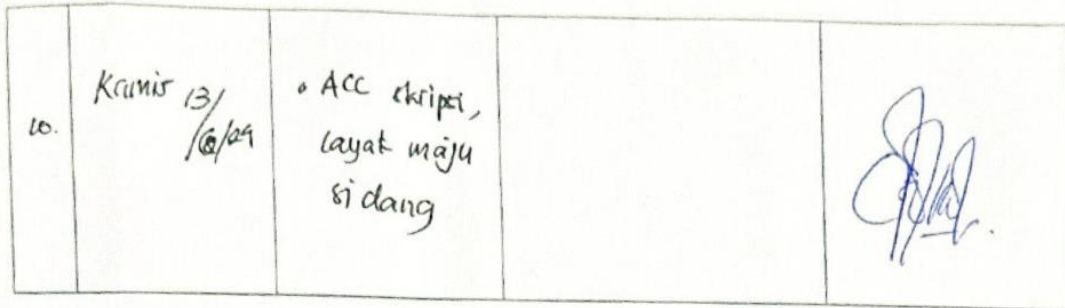 10.
Kamis 13/
/24
• ACC skripsi,
layak maju
sidang